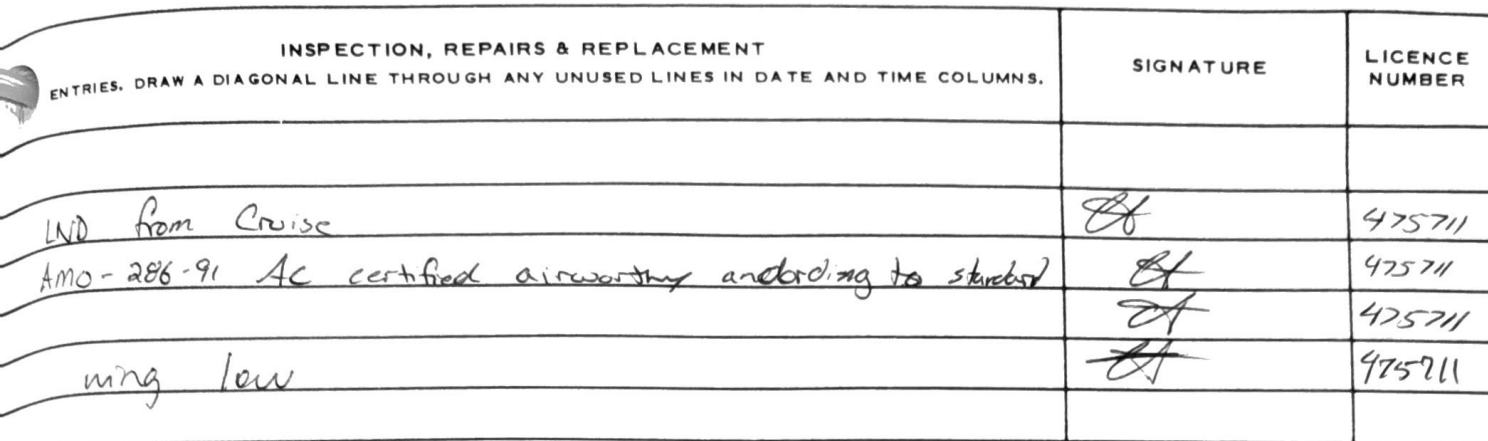 INSPECTION, REPAIRS & REPLACEMENT
ENTRIES. DRAW A DIAGONAL LINE THROUGH ANY UNUSED LINES IN DATE AND TIME COLUMNS.
SIGNATURE
LICENCE NUMBER
LND from Cruise 475711
AMO-286-91 AC certified airworthy andording to standard 475711
475711
ning low 475711